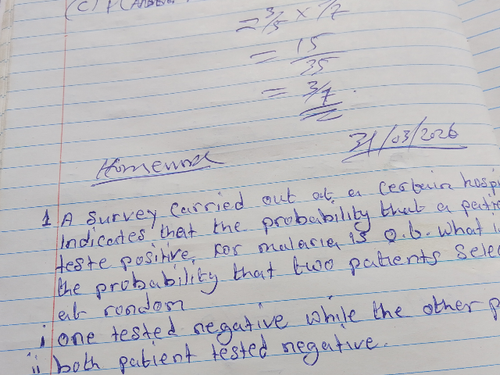 (C) P(
= 3/5 × 5/7
= 15/35
= 3/7
31/03/2026
Homework
1 A survey carried out at a certain hospi
indicates that the probability that a patie
teste positive, for malaria is 0.6. what i
the probability that two patients selec
at random
i one tested negative while the other p
ii both patient tested negative.